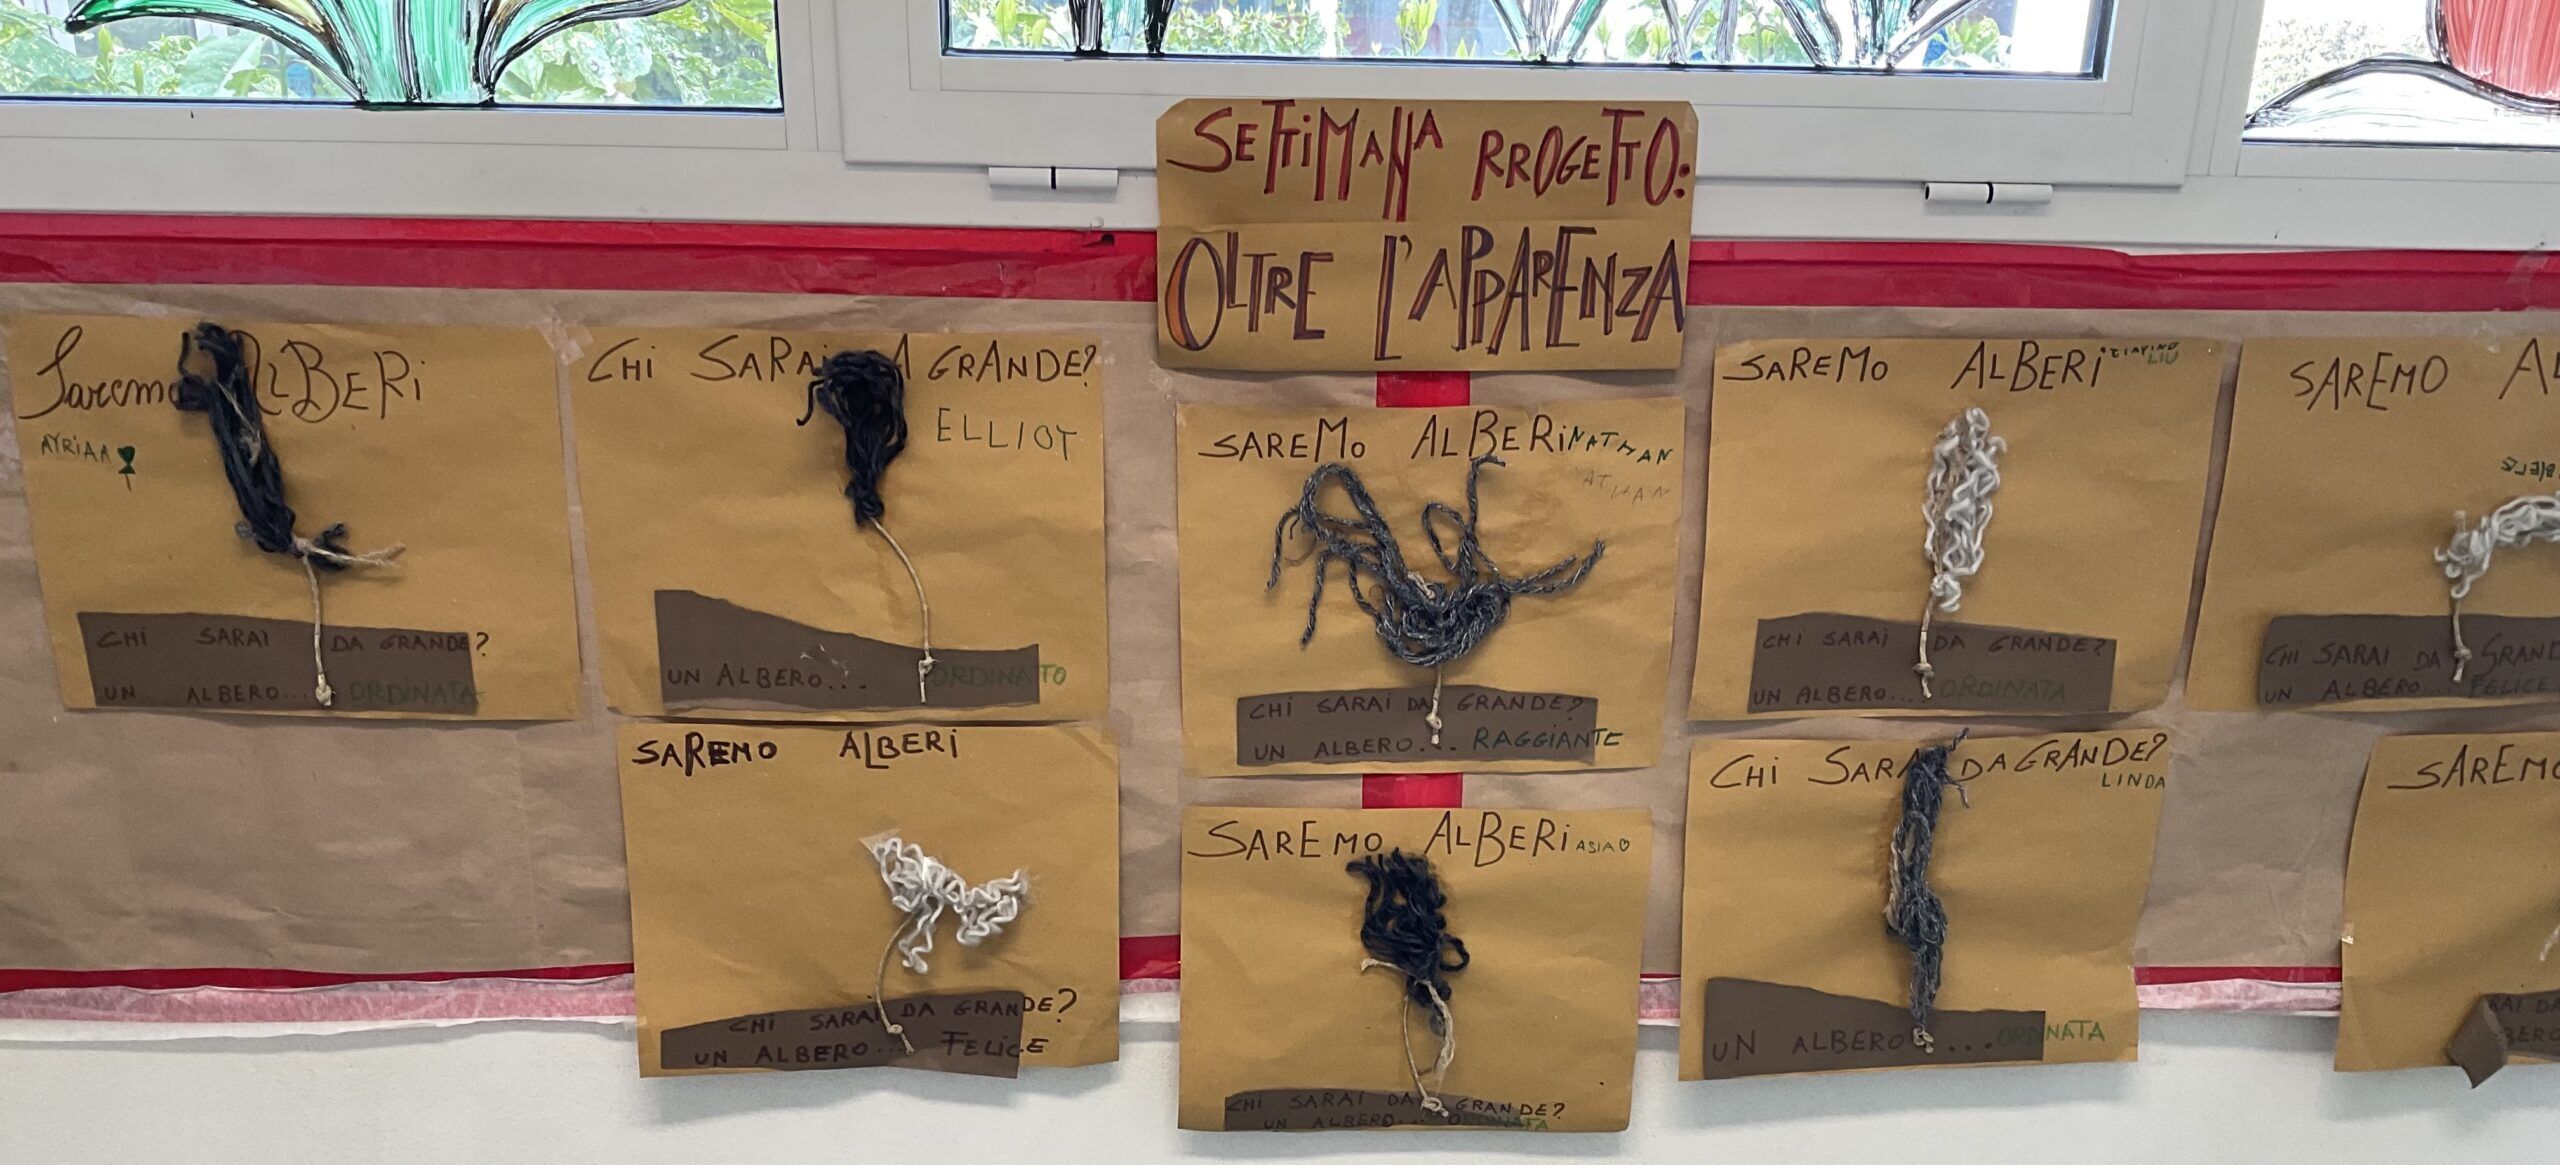 SETTIMANA PROGETTO:
OLTRE L'APPARENZA
Saremo ALBERI
CHI SARAI DA GRANDE?
UN ALBERO... ORDINATA
CHI SARAI A GRANDE?
ELLIOT
UN ALBERO... ORDINATO
SAREMO ALBERI
CHI SARAI DA GRANDE?
UN ALBERO... FELICE
SAREMO ALBERI NATHAN
CHI SARAI DA GRANDE?
UN ALBERO... RAGGIANTE
SAREMO ALBERI ASIA
CHI SARAI DA GRANDE?
UN ALBERO... ORDINATA
SAREMO ALBERI
LIU
CHI SARAI DA GRANDE?
UN ALBERO... ORDINATA
CHI SARAI DA GRANDE?
LINDA
UN ALBERO... ORDINATA
SAREMO AL
CHI SARAI DA GRAND
UN ALBERO... FELICE
SAREMO